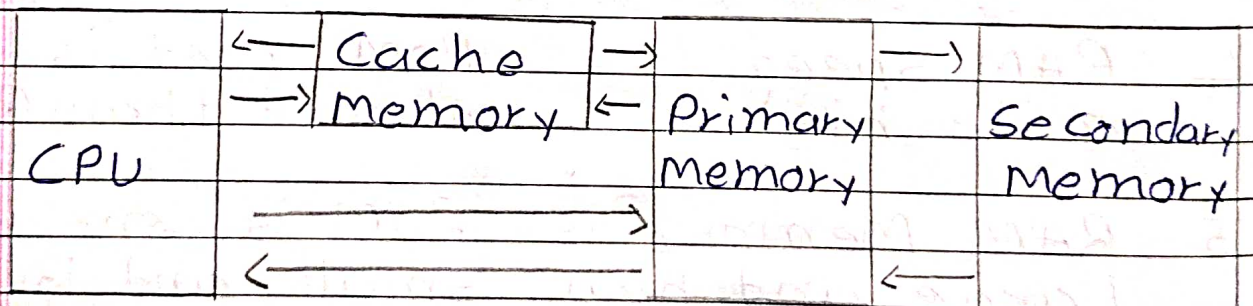 Cache
Memory
Primary
Memory
Secondary
Memory
CPU